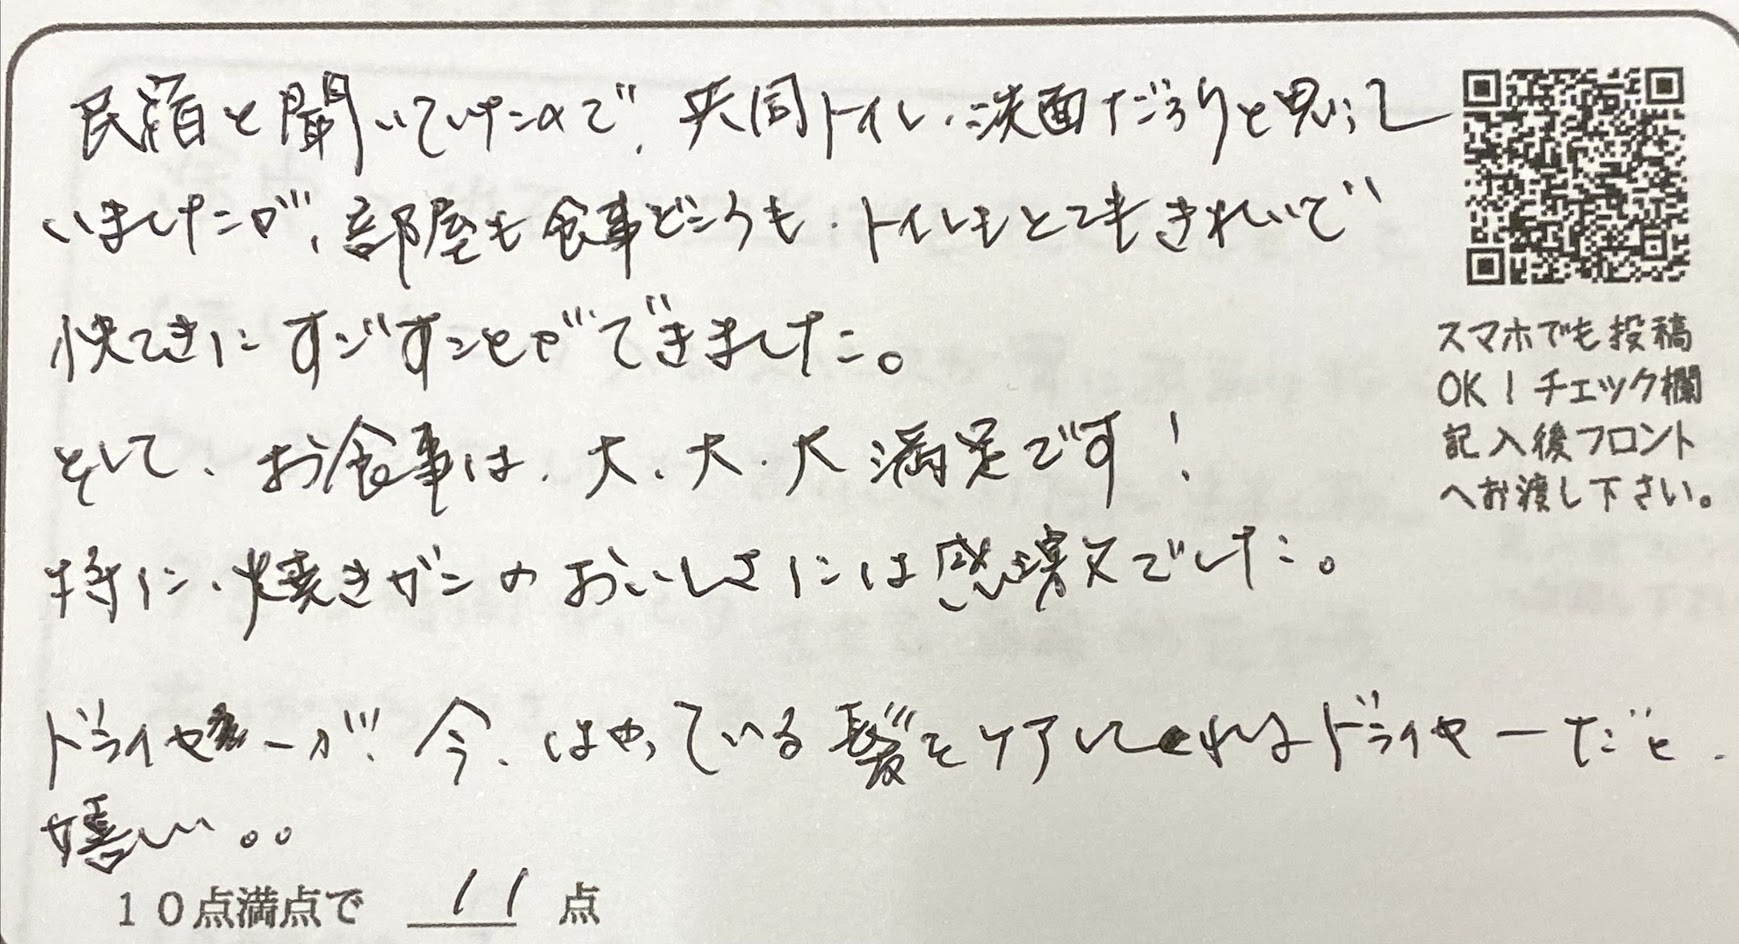 民宿と聞いていたので、共同トイレ、洗面だろうと思って
いましたが、部屋も食事どころも、トイレもとてもきれいで
快てきにすごすことができました。
そして、お食事は、大、大、大満足です！
特に、焼きガニのおいしさには感激でした。
ドライヤーが、今、はやっている髪をケアしてくれるドライヤーだと、
嬉しい。。
10点満点で 11 点
スマホでも投稿
OK！チェック欄
記入後フロント
へお渡し下さい。